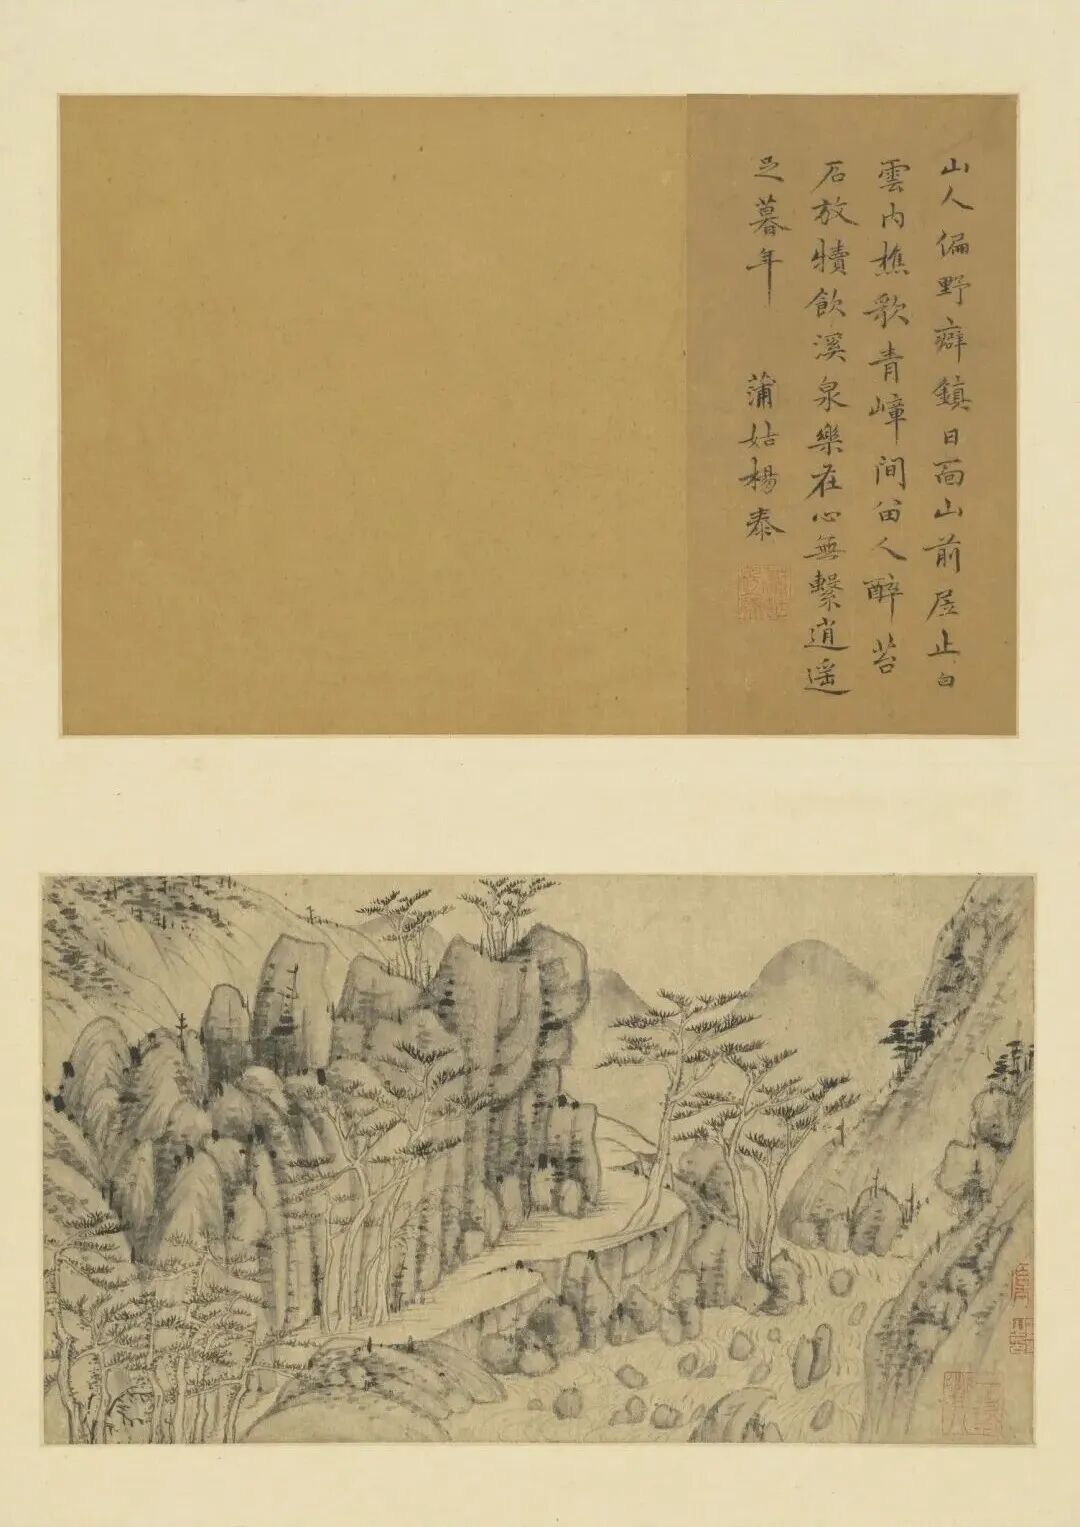 山人偏野癖鎮日面山前屋止白
雲內樵歌青嶂間畄人醉苔
石放犢飲溪泉樂在心無繫逍遥
足暮年
蒲姑楊泰